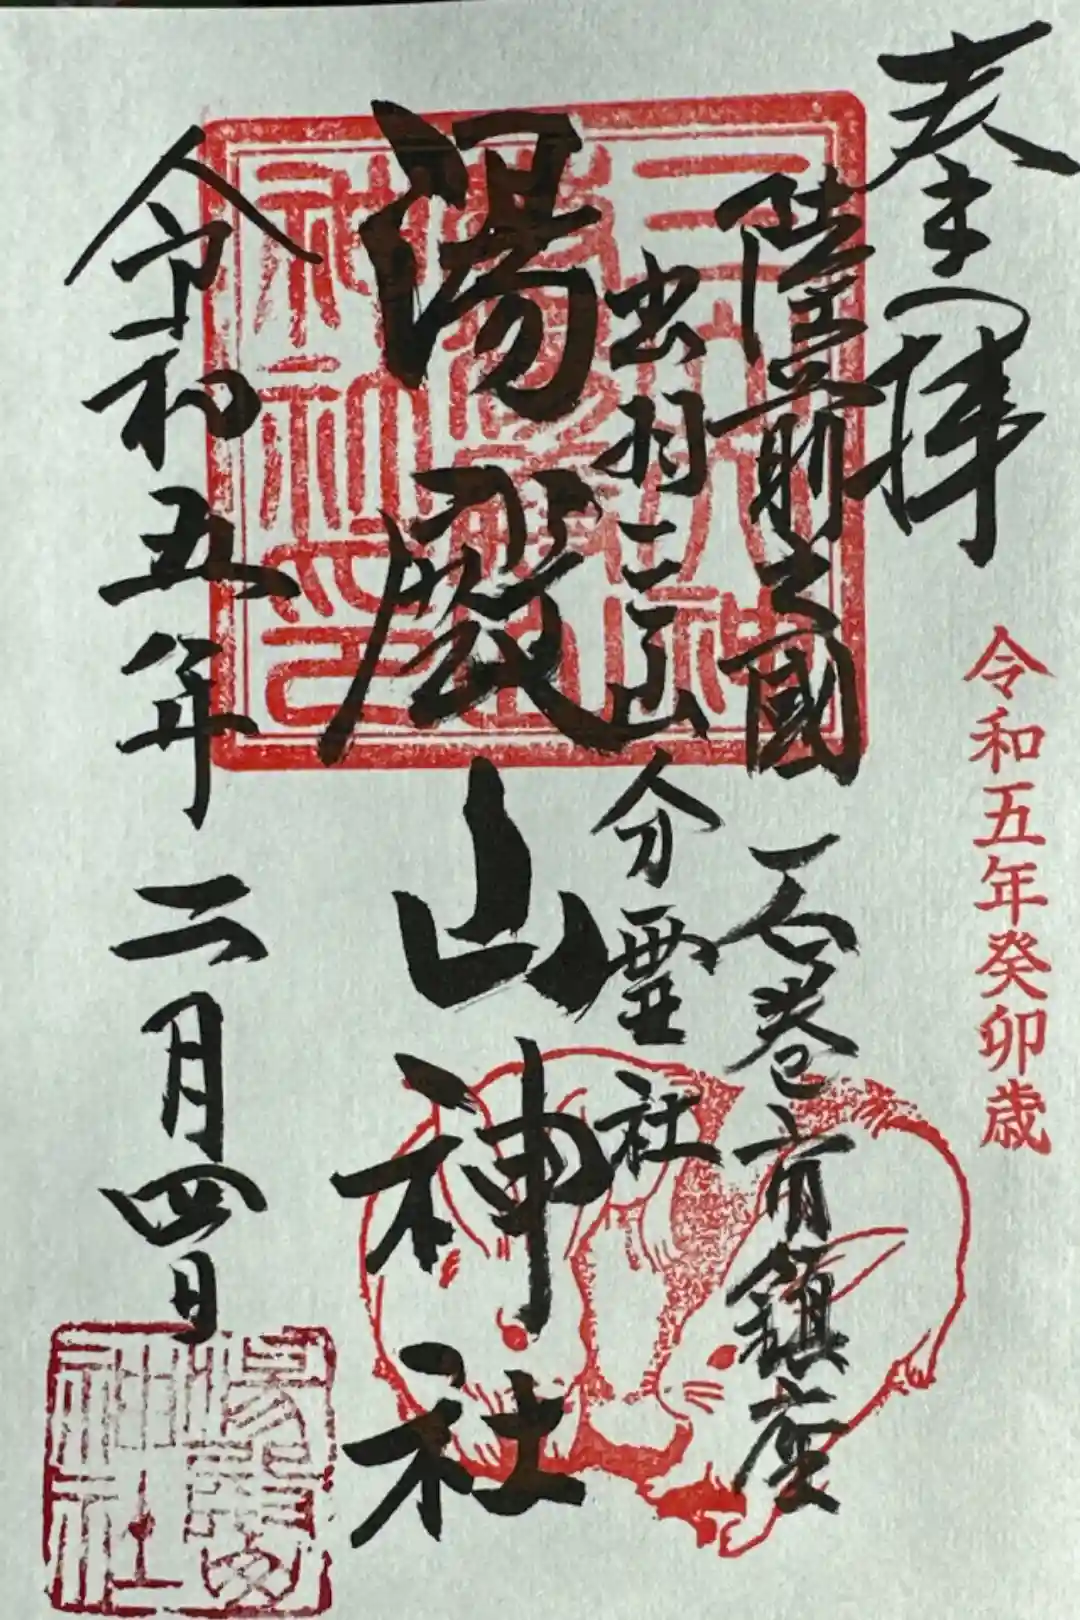 奉拝
令和五年癸卯歳
陸前之國 石巻市鎮座
出羽三山分霊社
湯殿山神社
令和五年二月四日